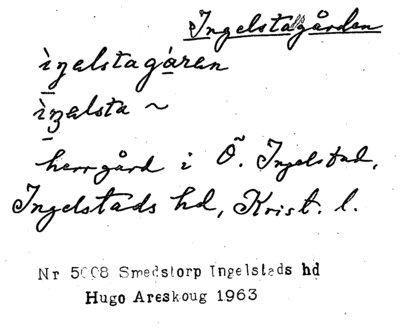 Ingelstagården
ìŋəlstagá̱rən
ìŋəlsta ~
herrgård i Ö. Ingelstad,
Ingelstads hd, Krist. l.
Nr 5008 Smedstorp Ingelstads hd
Hugo Areskoug 1963